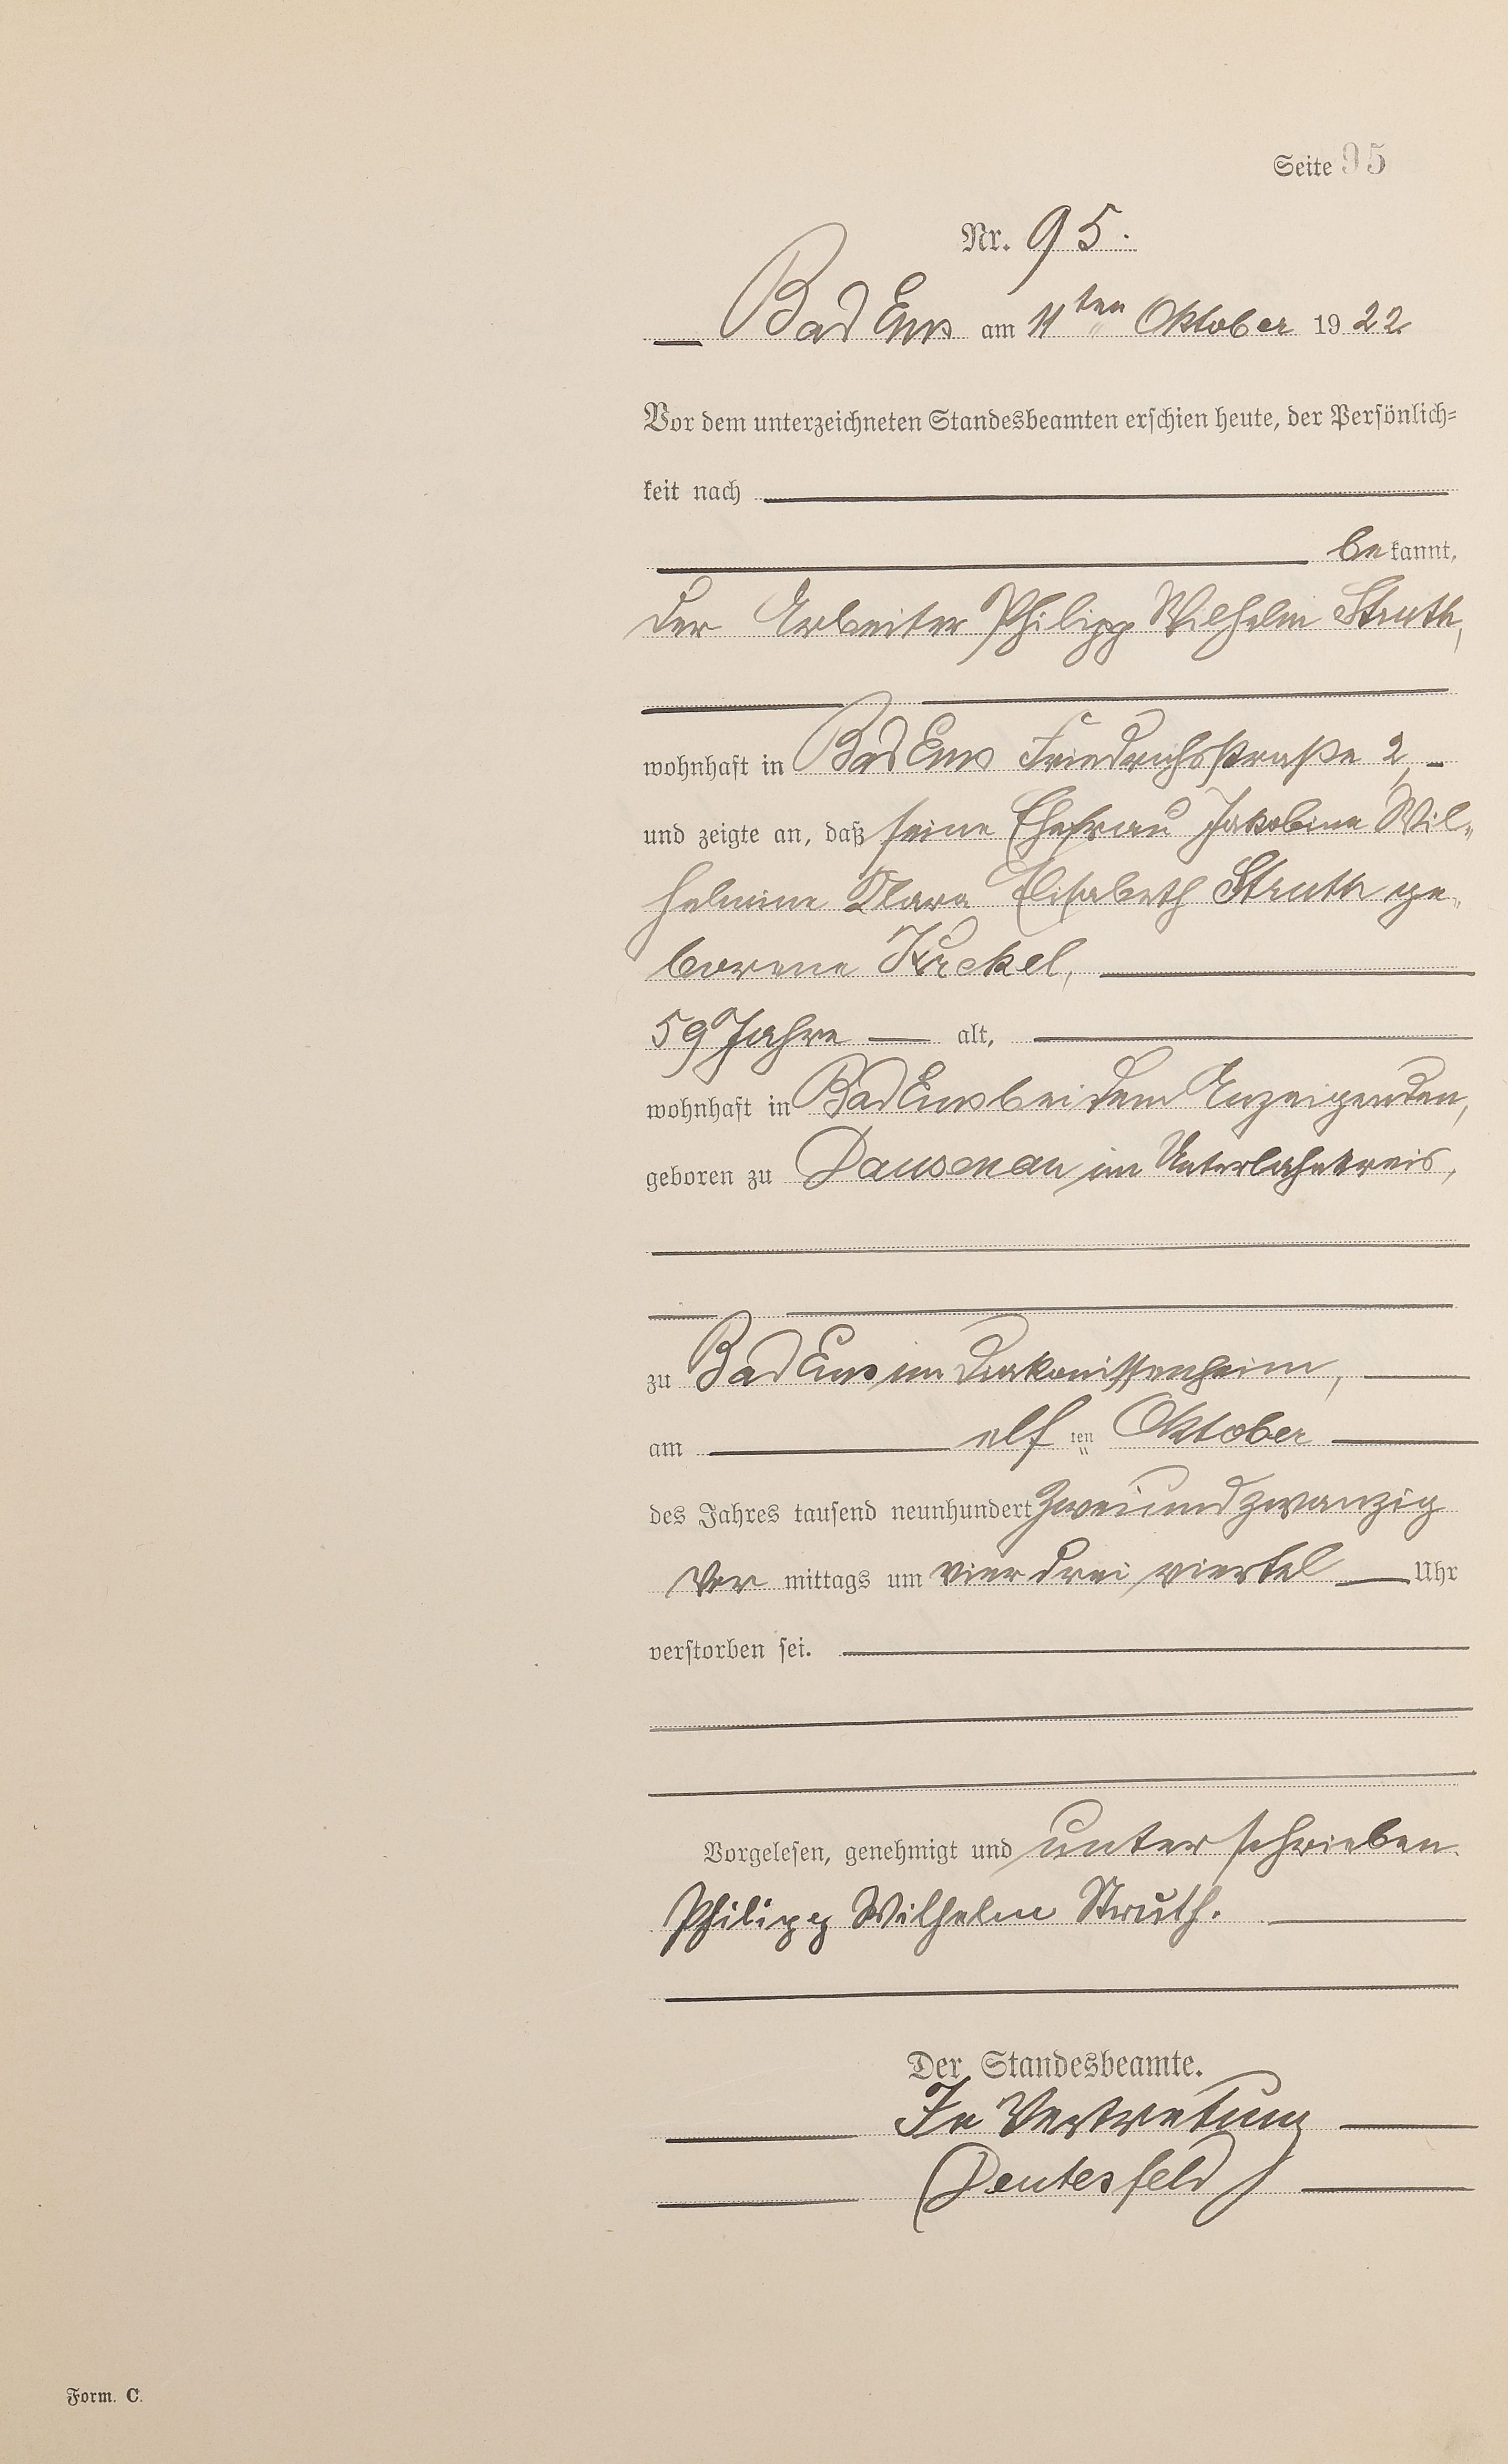 Seite 95
Nr. 95.
Bad Ems am 11ten Oktober 1922
Vor dem unterzeichneten Standesbeamten erschien heute, der Persönlich=
keit nach
bekannt,
der Arbeiter Philipp Wilhelm Struth,
wohnhaft in Bad Ems Friedrichsstraße 2,
und zeigte an, daß seine Ehefrau Jakobine Wil„
helmine Klara Elisabeth Struth ge„
borene
59 Jahre alt,
wohnhaft in Bad Ems bei dem Anzeigenden,
geboren zu Dausenau im Unterlahnkreis,
zu Bad Ems im Diakonissenheim,
am elften Oktober
des Jahres tausend neunhundert zweiundzwanzig
Vormittags um vier drei viertel Uhr
verstorben sei.
Vorgelesen, genehmigt und unterschrieben.
Philipp Wilhelm Struth.
Der Standesbeamte.
In Vertretung
Form. C.